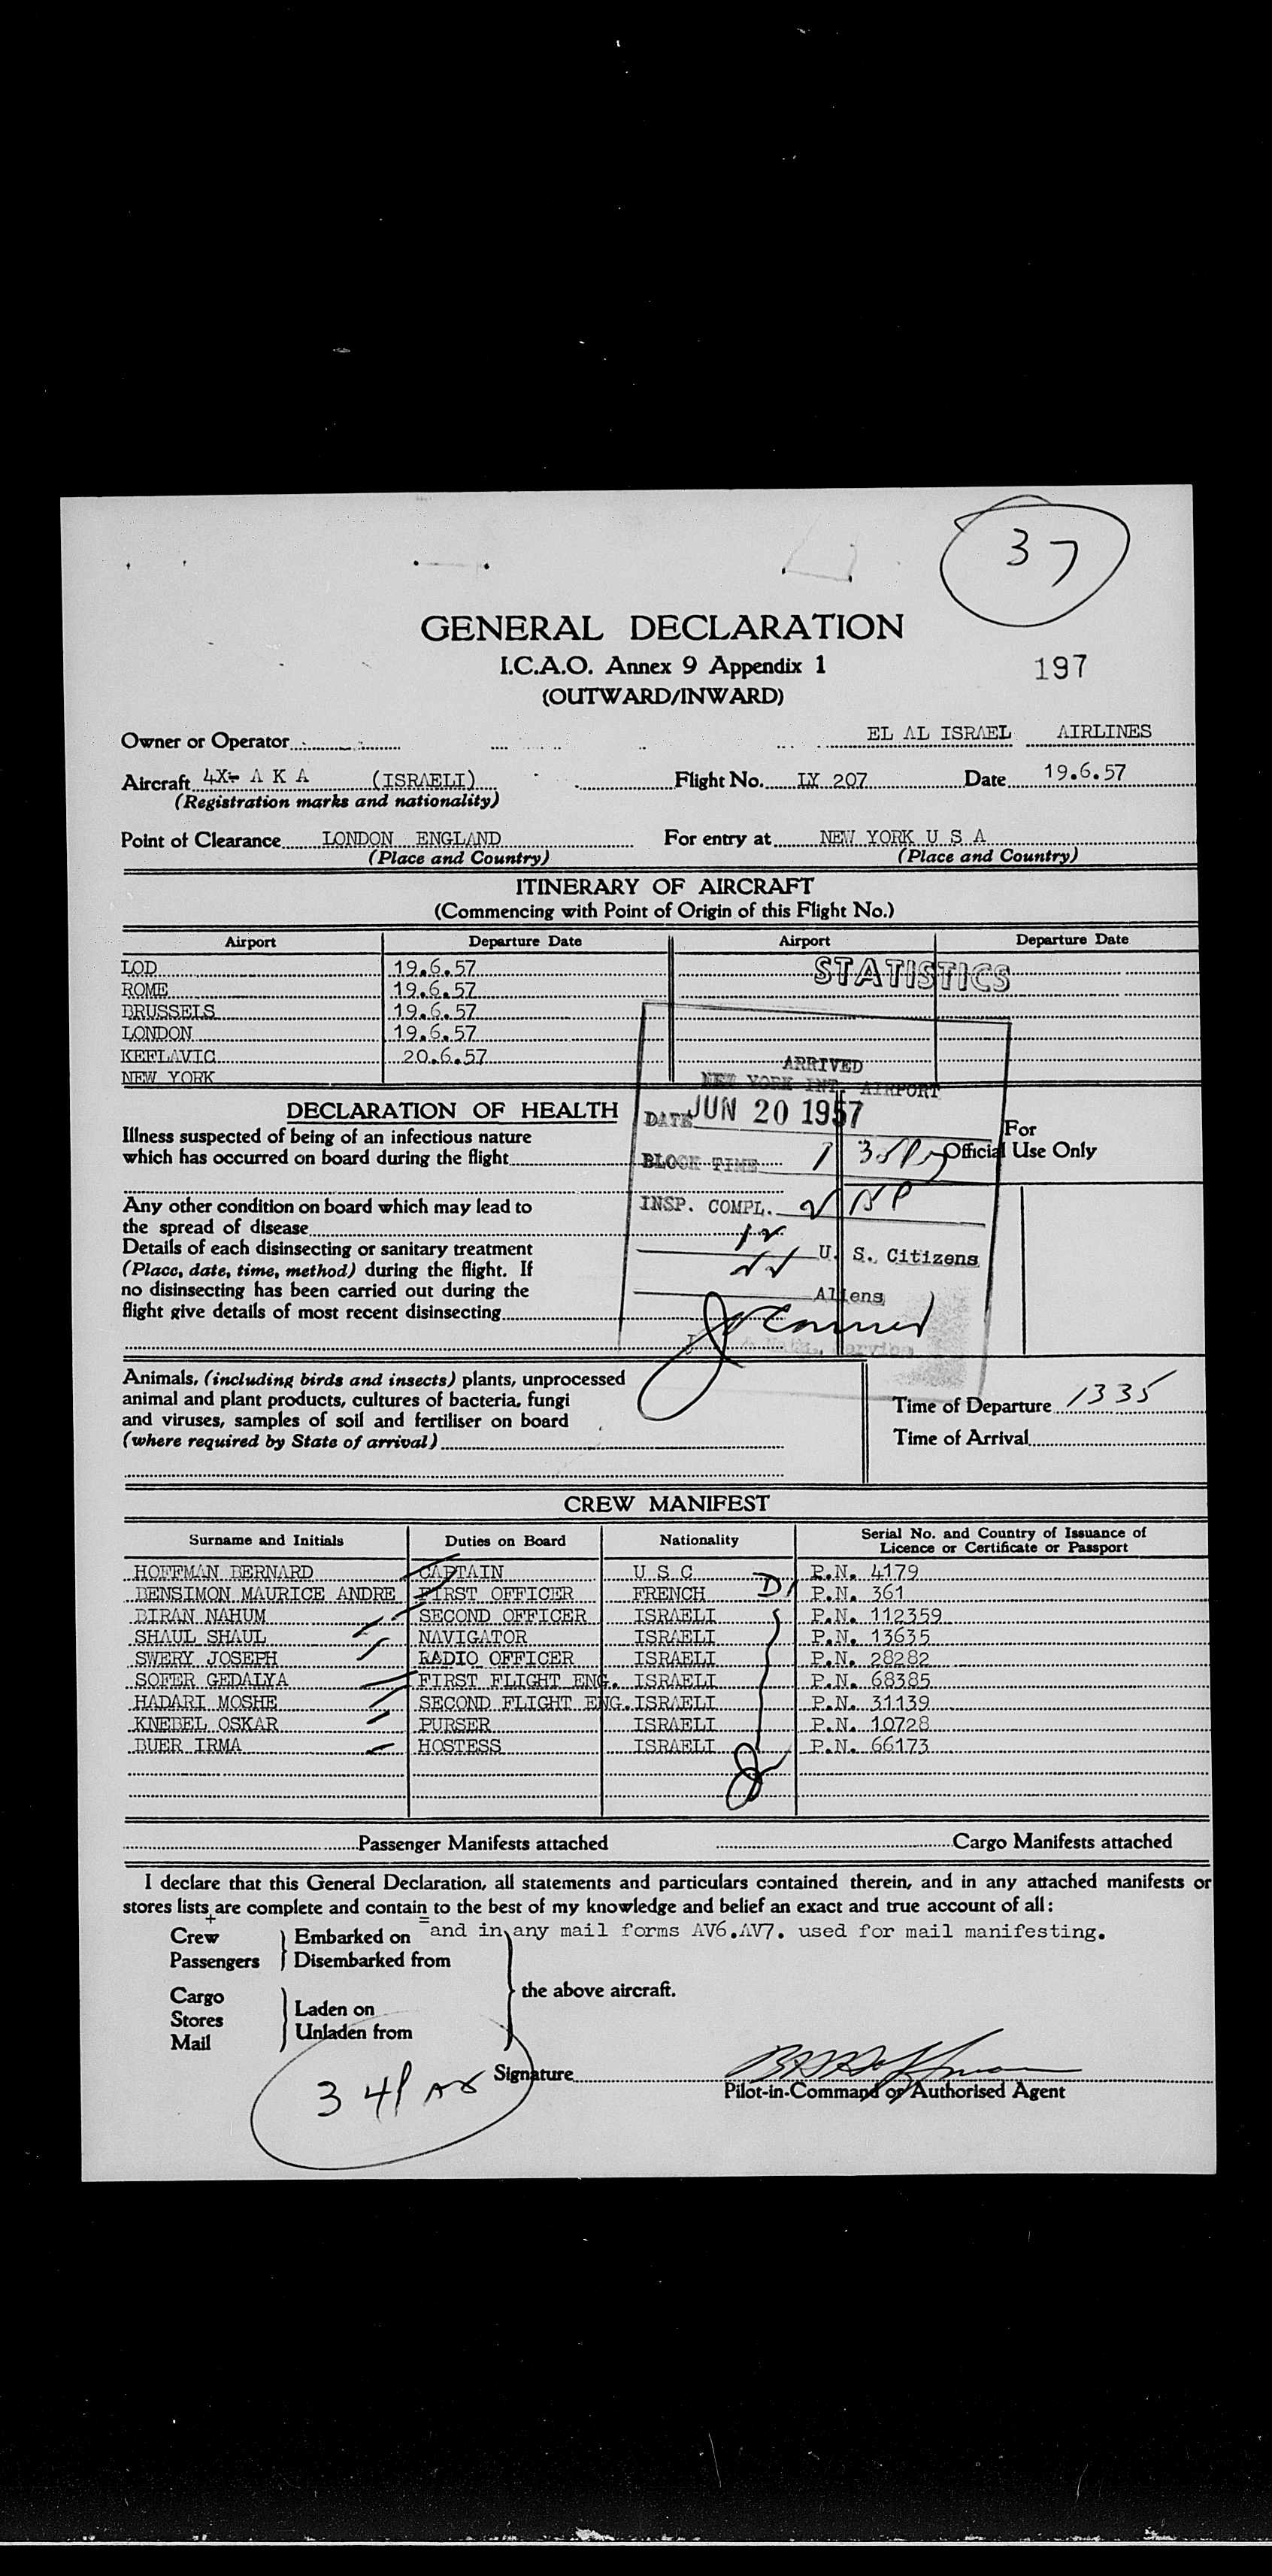 37
GENERAL DECLARATION
I.C.A.O. Annex 9 Appendix 1
197
(OUTWARD/INWARD)
Owner or Operator EL AL ISRAEL AIRLINES
Aircraft 4X- A K A (ISRAELI) Flight No. LY 207 Date 19.6.57
(Registration marks and nationality)
Point of Clearance LONDON ENGLAND For entry at NEW YORK U S A
(Place and Country) (Place and Country)
ITINERARY OF AIRCRAFT
(Commencing with Point of Origin of this Flight No.)
Airport Departure Date Airport Departure Date
LOD 19.6.57 STATISTICS
ROME 19.6.57
BRUSSELS 19.6.57
LONDON 19.6.57
KEFLAVIC 20.6.57
NEW YORK
ARRIVED
NEW YORK INT. AIRPORT
DATE JUN 20 1957
BLOCK TIME
INSP. COMPL.
U. S. Citizens
Aliens
DECLARATION OF HEALTH
Illness suspected of being of an infectious nature
which has occurred on board during the flight
For
Official Use Only
Any other condition on board which may lead to
the spread of disease
Details of each disinsecting or sanitary treatment
(Place, date, time, method) during the flight. If
no disinsecting has been carried out during the
flight give details of most recent disinsecting
Animals, (including birds and insects) plants, unprocessed
animal and plant products, cultures of bacteria, fungi
and viruses, samples of soil and fertiliser on board
(where required by State of arrival)
Time of Departure 1335
Time of Arrival
CREW MANIFEST
Surname and Initials Duties on Board Nationality Serial No. and Country of Issuance of
Licence or Certificate or Passport
HOFFMAN BERNARD CAPTAIN U S C P.N. 4179
BENSIMON MAURICE ANDRE FIRST OFFICER FRENCH D1 P.N. 361
BIRAN NAHUM SECOND OFFICER ISRAELI P.N. 112359
SHAUL SHAUL NAVIGATOR ISRAELI P.N. 13635
SWERY JOSEPH RADIO OFFICER ISRAELI P.N. 28282
SOFER GEDALYA FIRST FLIGHT ENG. ISRAELI P.N. 68385
HADARI MOSHE SECOND FLIGHT ENG. ISRAELI P.N. 31139
KNEBEL OSKAR PURSER ISRAELI P.N. 10728
BUER IRMA HOSTESS ISRAELI P.N. 66173
Passenger Manifests attached Cargo Manifests attached
I declare that this General Declaration, all statements and particulars contained therein, and in any attached manifests or
stores lists are complete and contain to the best of my knowledge and belief an exact and true account of all:
Crew Embarked on =and in any mail forms AV6.AV7. used for mail manifesting.
Passengers Disembarked from
the above aircraft.
Cargo
Stores Laden on
Mail Unladen from
34
Signature
Pilot-in-Command or Authorised Agent